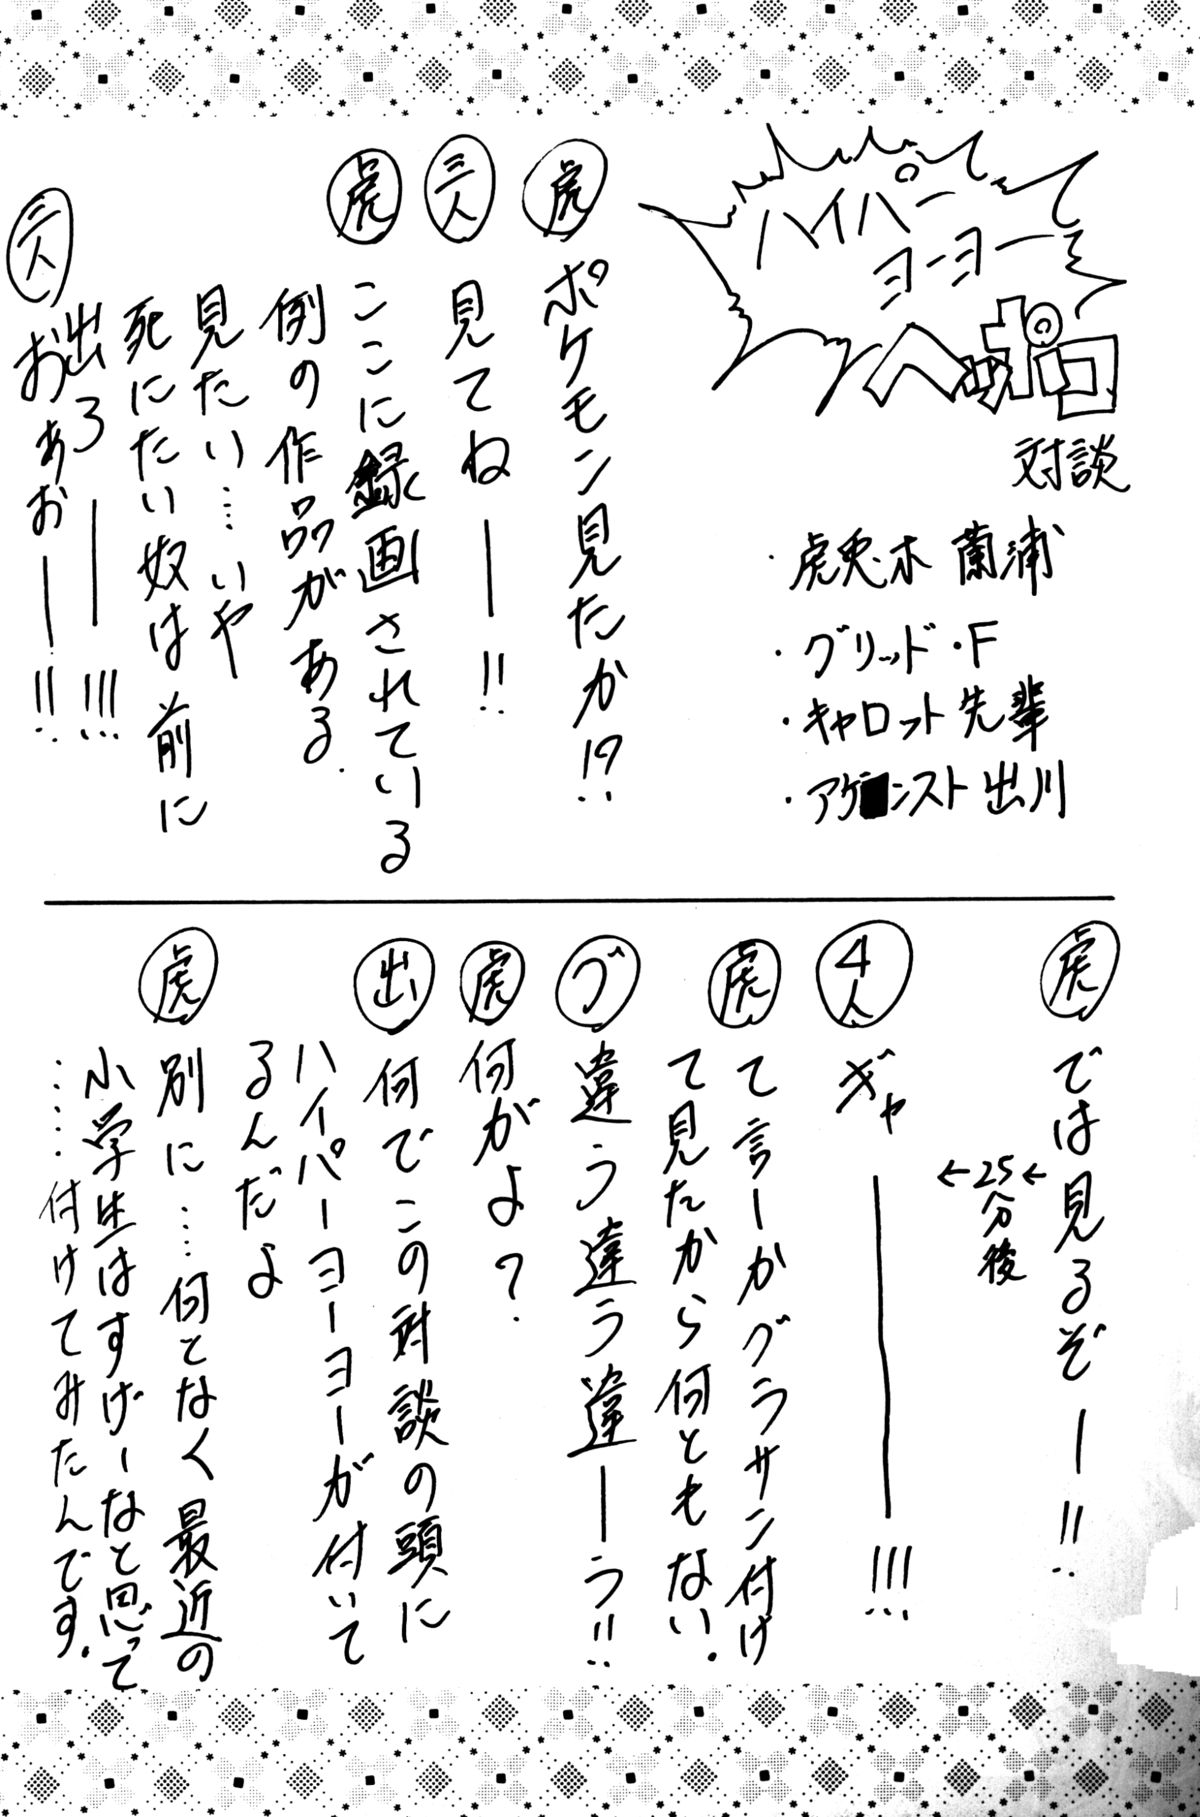 ハイパー
ヨーヨー
ヘッポコ
対談
・虎兎木 蘭浦
・グリッド・F
・キャロット先輩
・アゲ ンスト出川
虎 ポケモン見たか!?
三人 見てねーー!!
虎 ここに録画されている
例の作品がある.
見たい…いや
死にたい奴は前に
出ろーー!!!
三人 おぁおーー!!
虎 では見るぞー!!
←25分後←
4人 ギャーーー!!!
虎 て言ーかグラサン付け
て見たから何ともない.
グ 違う違う違ーう!!
虎 何がよ?
出 何でこの対談の頭に
ハイパーヨーヨーが付いて
るんだよ
虎 別に…何となく最近の
小学生はすげーなと思って
……付けてみたんです.